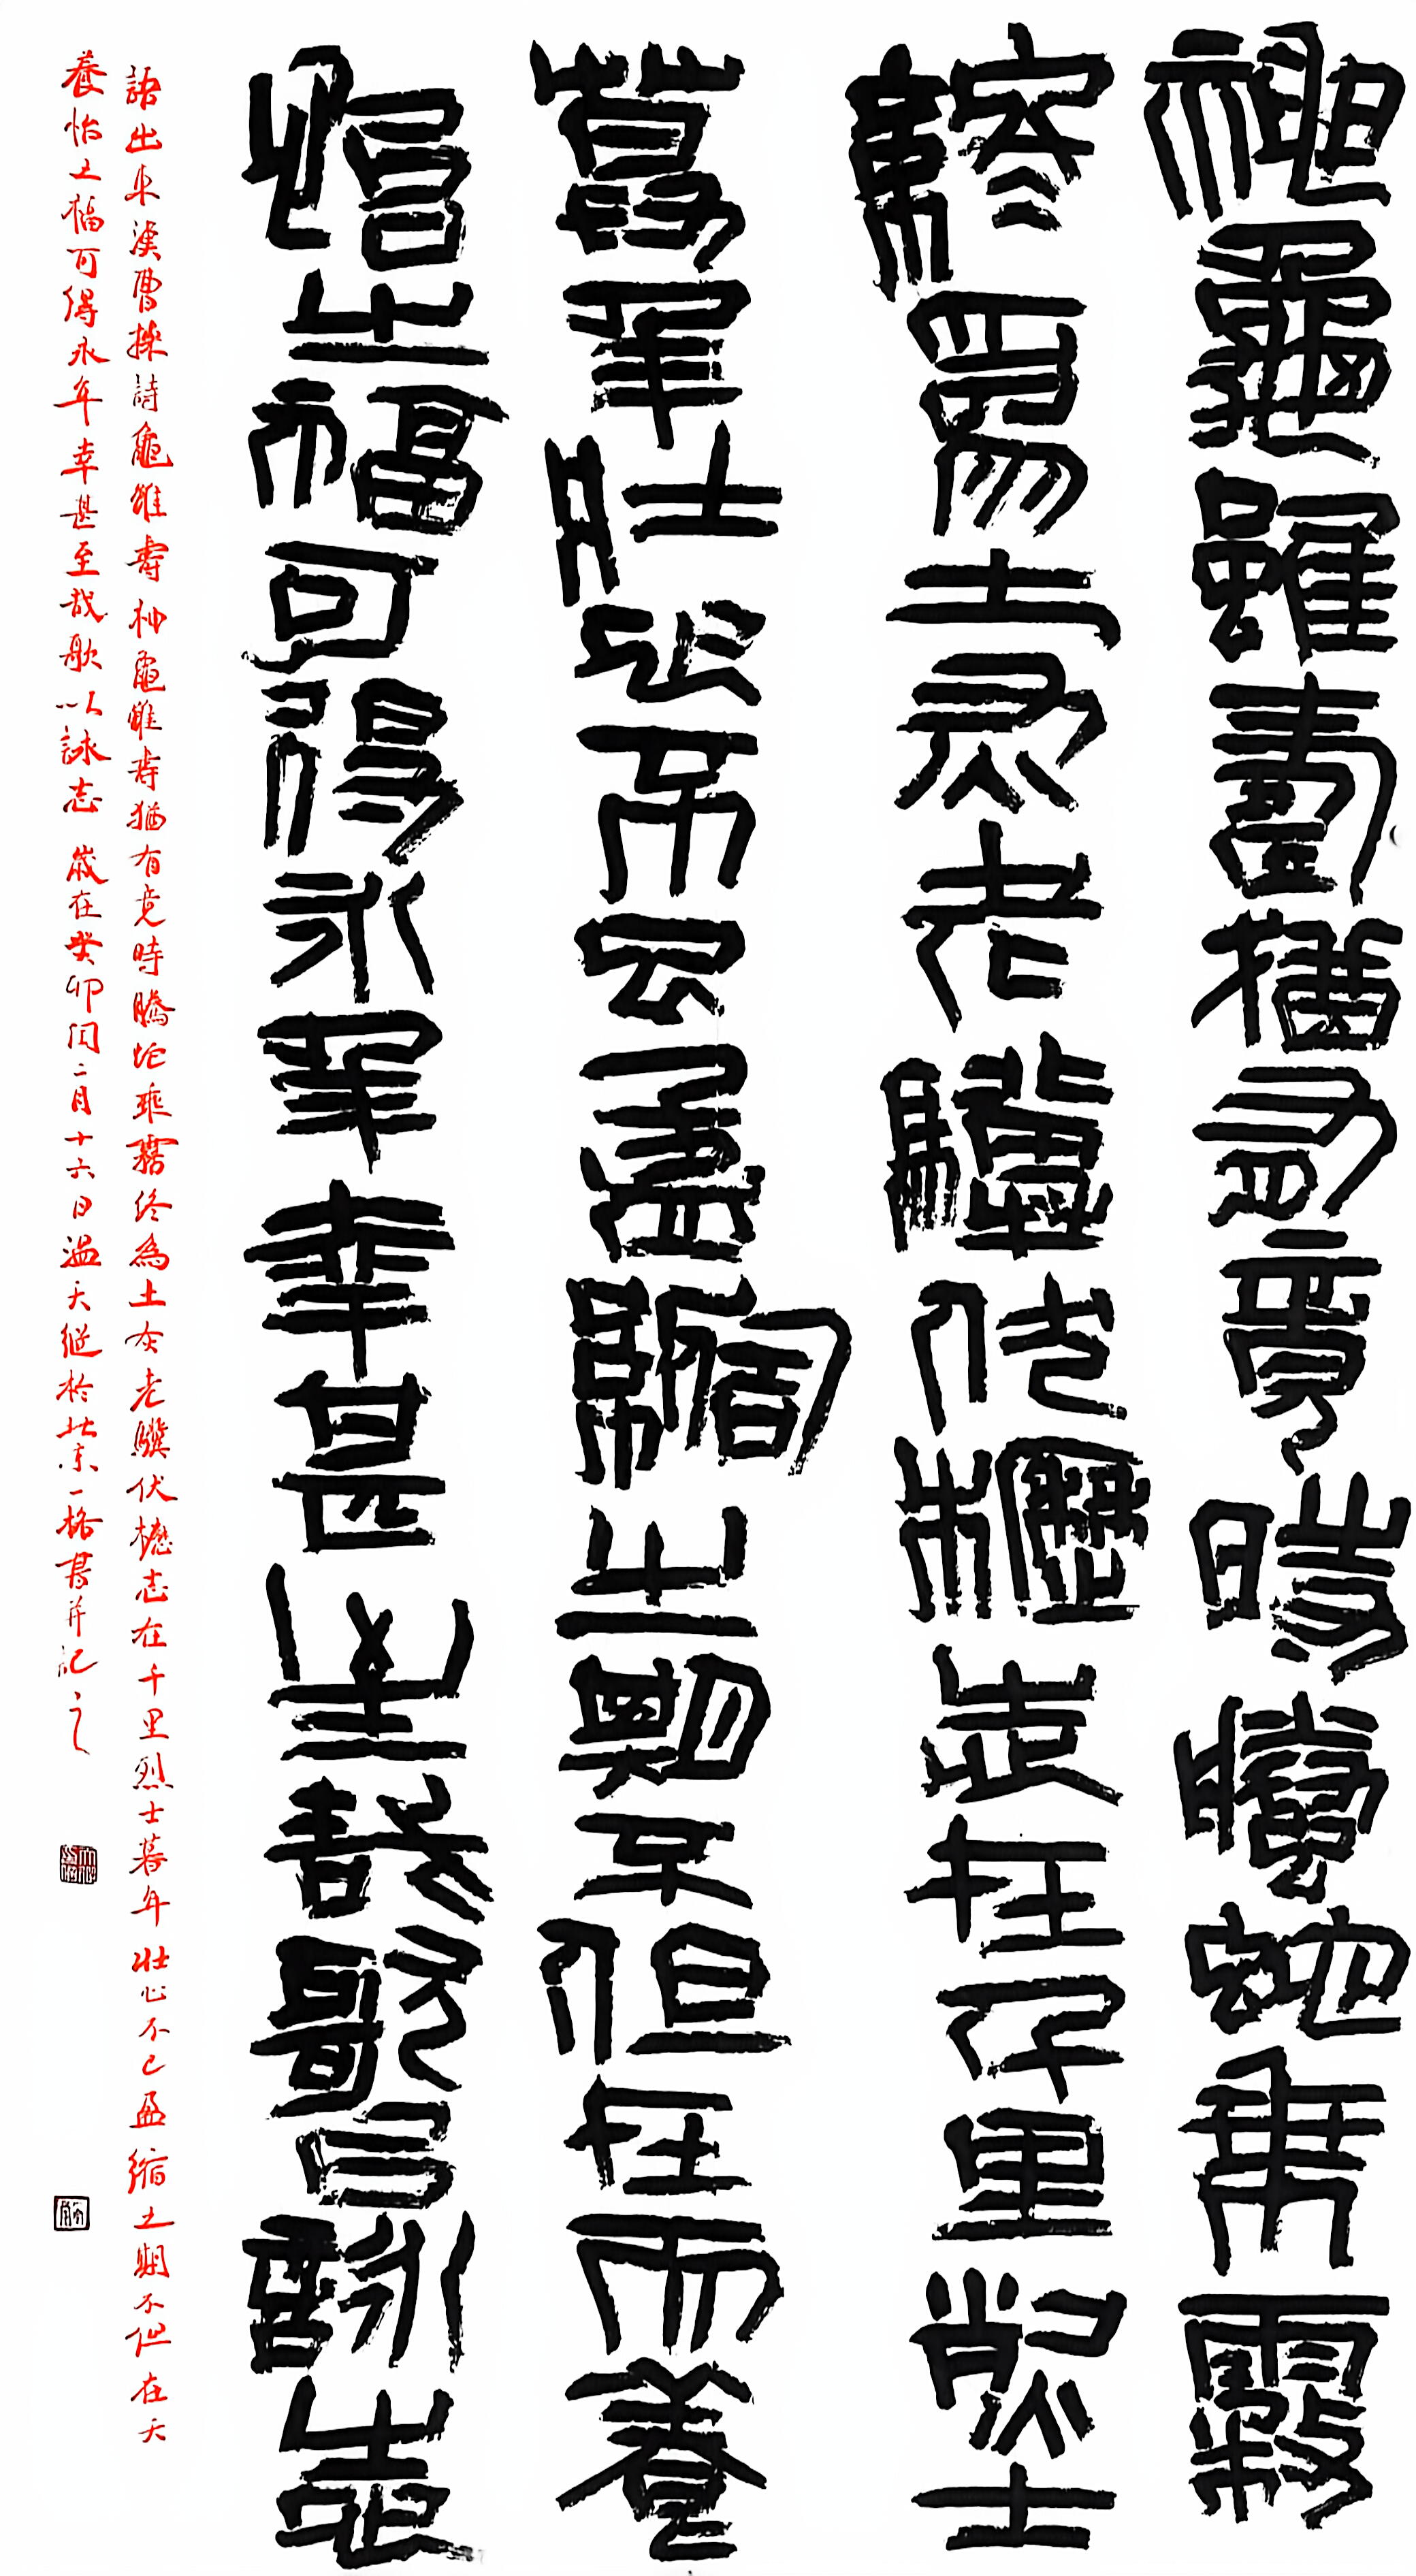 神龜雖壽猶有竟時騰蛇乘霧
終爲土灰老驥伏櫪志在千里烈士
暮年壯心不已盈縮之期不但在天養
怡之福可得永年幸甚至哉歌以詠志
語出東漢曹操詩龜雖壽神龜雖壽猶有竟時騰蛇乘霧終為土灰老驥伏櫪志在千里烈士暮年壯心不已盈縮之期不但在天
養怡之福可得永年幸甚至哉歌以詠志 歲在癸卯閏二月十六日溫大縱於北京一格書并記之